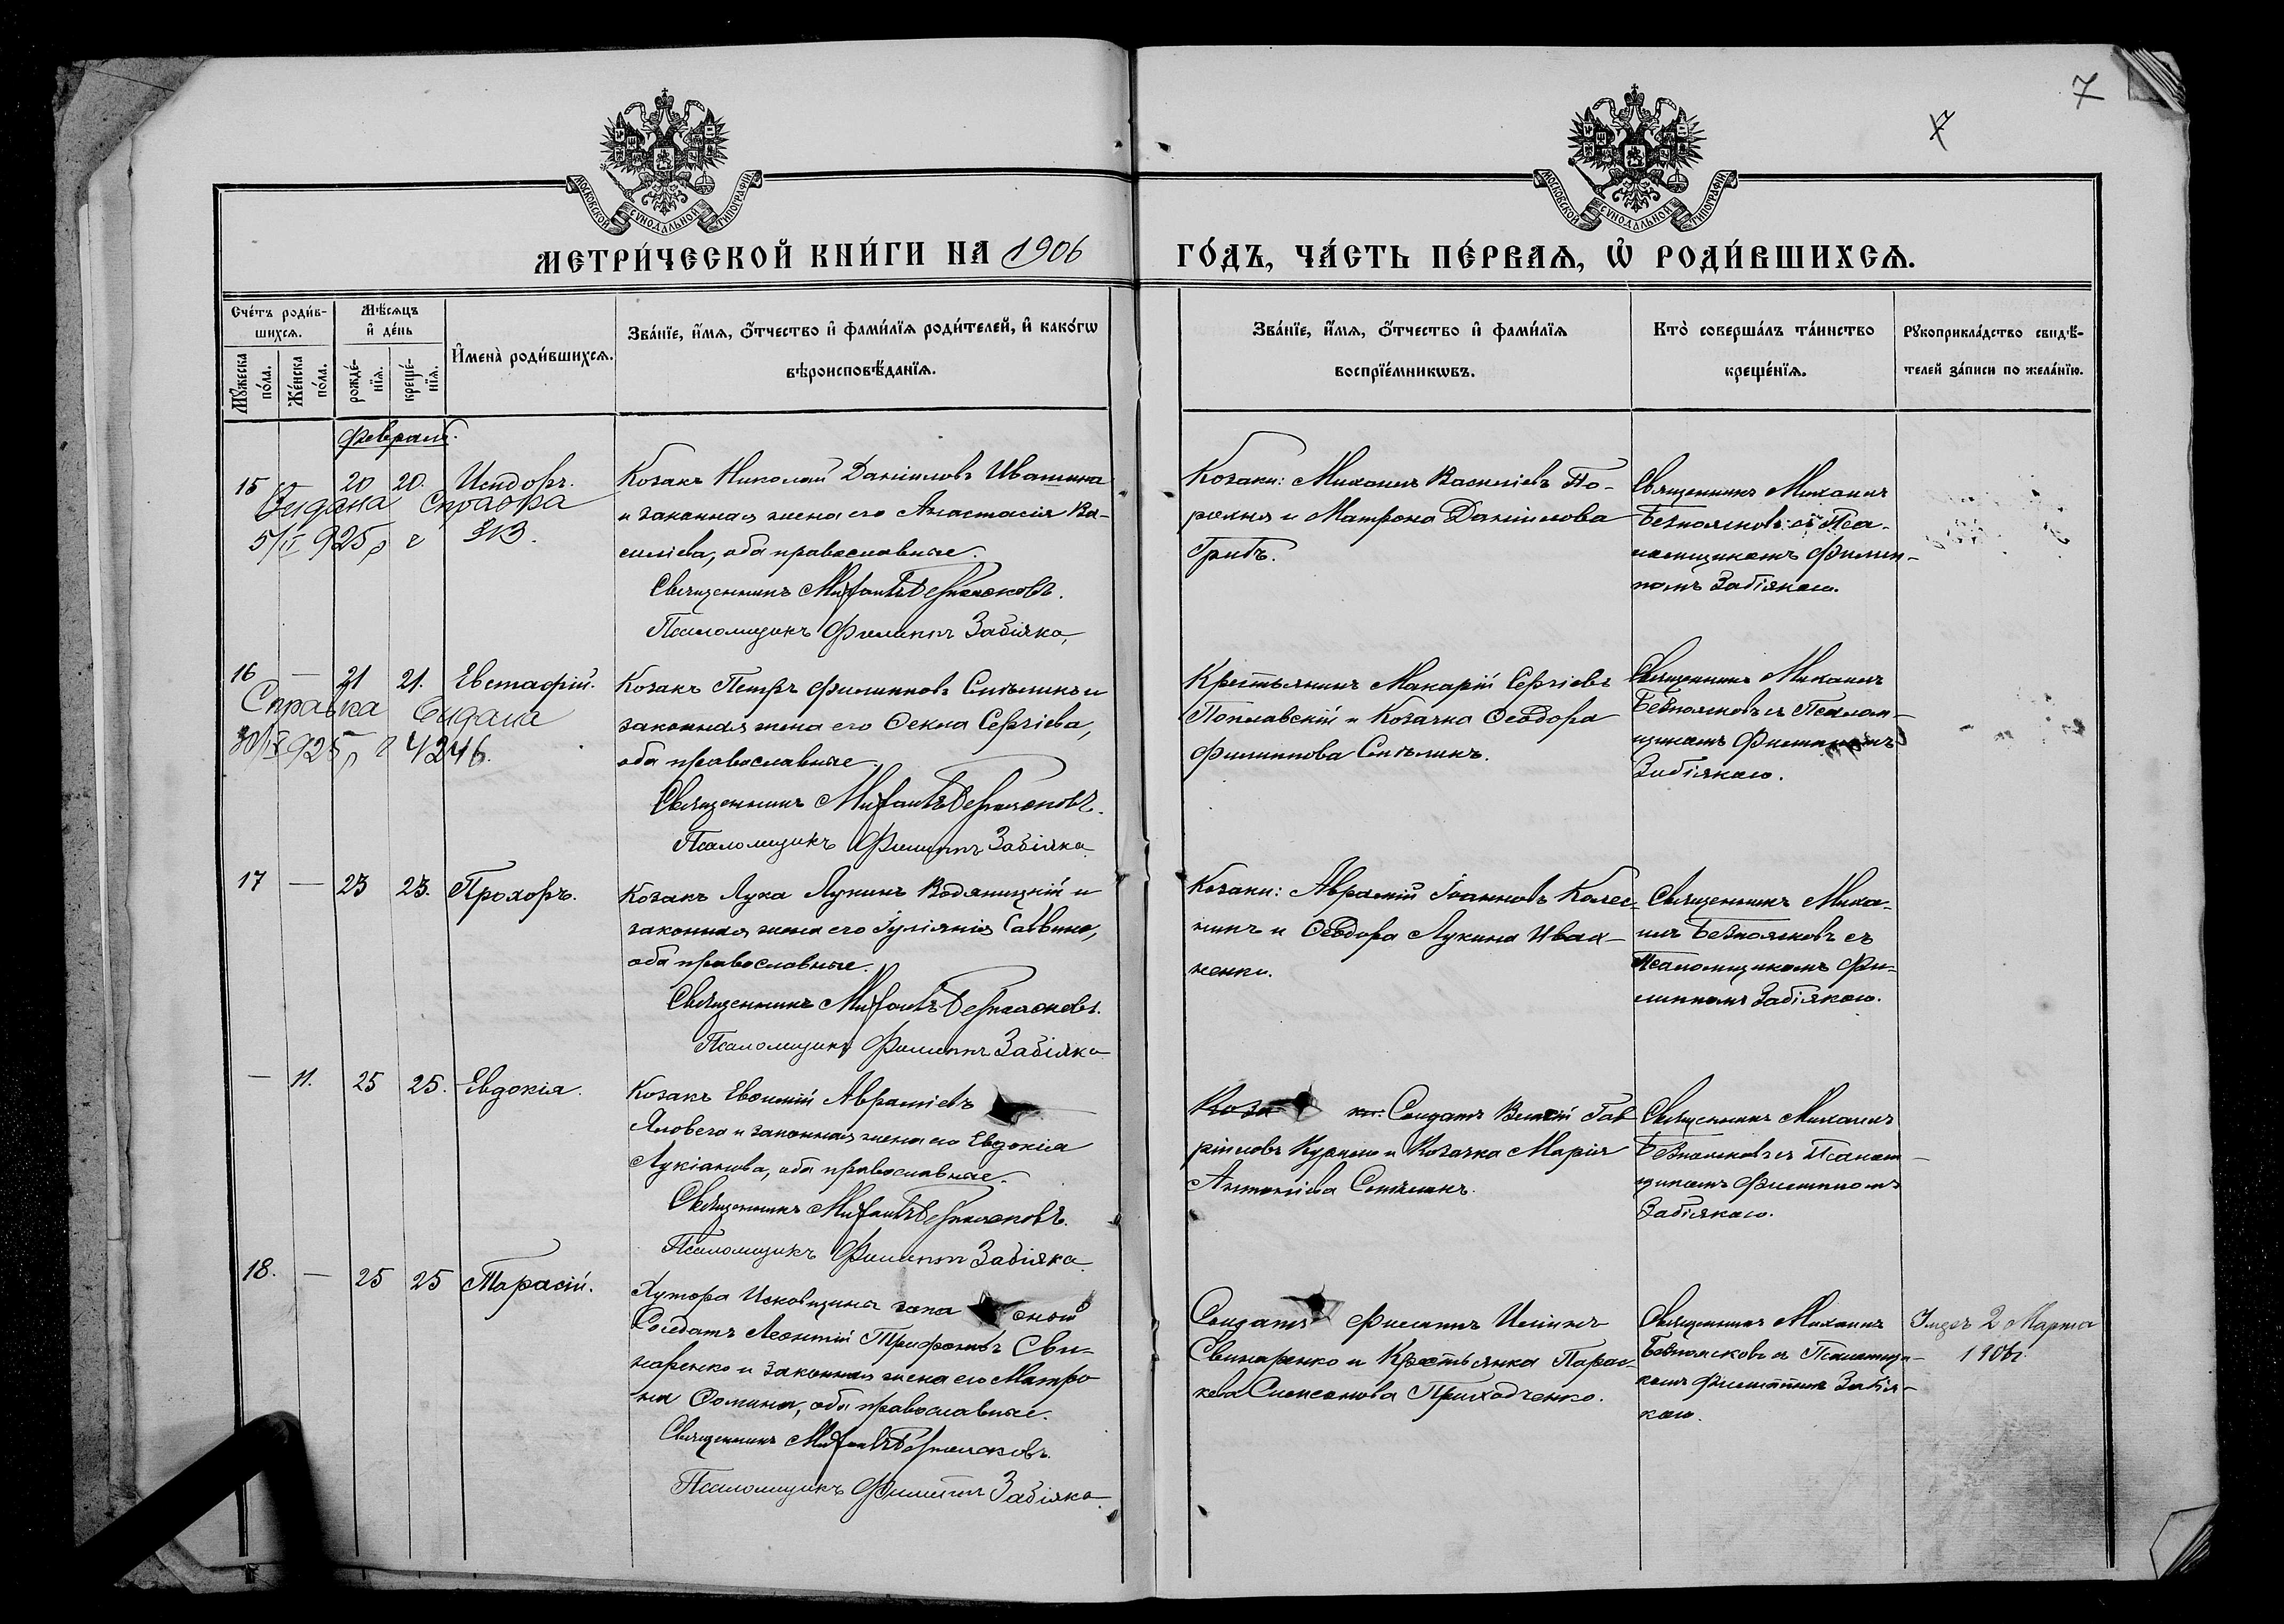 7
7
МОСКОВСКОЙ СѴНОДАЛЬНОЙ ТИПОГРАФІИ
МОСКОВСКОЙ СѴНОДАЛЬНОЙ ТИПОГРАФІИ
МЕТРИ́ЧЕСКОЙ КНИ́ГИ НА 1906 ГО́ДЪ, ЧА́СТЬ ПЕ́РВАѦ, Ѡ҆ РОДИ́ВШИХСѦ.
Сче́тъ роди́в-
шихсѧ.
Мꙋ́жеска
по́ла.
Же́нска
по́ла.
Мѣ́сѧцъ
и҆ де́нь
рожде́-
нїѧ.
креще́-
нїѧ.
И҆мена̀ роди́вшихсѧ.
Зва́нїе, и҆́мѧ, ѻ҆́тчество и҆ фами́лїѧ роди́телей, и҆ како́гѡ
вѣроисповѣ́данїѧ.
Зва́нїе, и҆́мѧ, ѻ҆́тчество и҆ фами́лїѧ
воспрїе́мникѡвъ.
Кто̀ соверша́лъ та́инство
креще́нїѧ.
Рꙋкоприкла́дство свидѣ́-
телей за́писи по жела́нїю.
Февраль.
15 20 20. Исидоръ.
Видана Справка
5/II 925 р 313.
Козакъ Николай Даніиловъ Ивашина
и законная жена его Анастасія Ва-
силіева, оба православные.
Священникъ Михаилъ Безпоясковъ.
Псаломщикъ Филиппъ Забіяка.
Козаки: Михаилъ Василіевъ По-
и Матрона Даніилова
Грибъ.
Священникъ Михаилъ
Безпоясковъ съ Пса-
ломщикомъ Филип-
помъ Забіякою.
16 — 21 21. Евстафій.
Справка видана
925 р 4246.
Козакъ Петръ Филипповъ и
законная жена его Ѳекла Сергіева,
оба православные.
Священникъ Михаилъ Безпоясковъ.
Псаломщикъ Филиппъ Забіяка.
Крестьянинъ Макарій Сергіевъ
Поплавскій и Козачка Ѳеодора
Филиппова
Священникъ Михаилъ
Безпоясковъ съ Псалом-
щикомъ Филиппомъ
Забіякою.
17 — 23 23. Прохоръ.
Козакъ Лука Лукинъ Водяницкій и
законная жена его Іуліанія Саввина,
оба православные.
Священникъ Михаилъ Безпоясковъ.
Псаломщикъ Филиппъ Забіяка
Козаки: Аврамій Іоанновъ Колес-
никъ и Ѳеодора Лукина Иван-
ченко.
Священникъ Миха-
илъ Безпоясковъ съ
Псаломщикомъ Фи-
липпомъ Забіякою.
— 11. 25 25. Евдокія.
Козакъ Евѳимій Авраміевъ
Яловега и законная жена его Евдокія
Лукіанова, оба православные.
Священникъ Михаилъ Безпоясковъ.
Псаломщикъ Филиппъ Забіяка
Коза ки: Солдатъ Гав
ріиловъ и Козачка Марія
Антоніева
Священникъ Михаилъ
Безпоясковъ съ Псалом-
щикомъ Филиппомъ
Забіякою.
18. — 25 25 Тарасій.
Хутора запа сной
Солдатъ Леонтій Трифоновъ Сви-
наренко и законная жена его Матро
на Ѳомина, оба православные.
Священникъ Михаилъ Безпоясковъ.
Псаломщикъ Филиппъ Забіяка.
Солдатъ Филиппъ Иліинъ
Свинаренко и Крестьянка Парас-
кева Приходченко.
Священникъ Михаилъ
Безпоясковъ съ Псаломщи-
комъ Филиппомъ Забія-
кою.
2 Марта
1906 г.